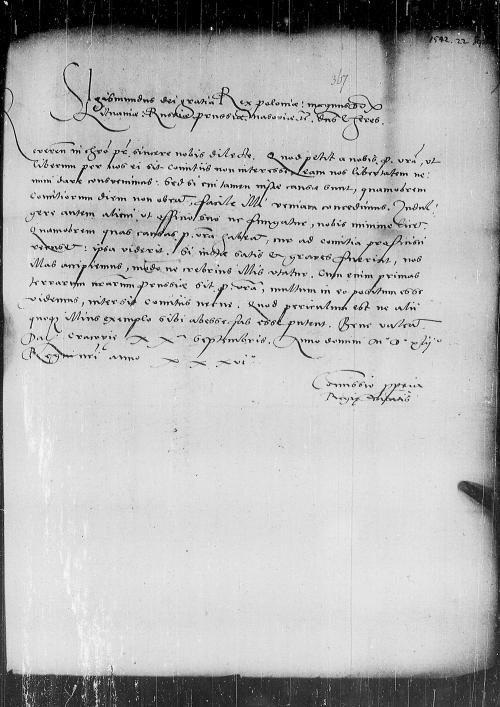 1542. 22
367
Sigismundus dei gratia Rex polonie: magnus dux
Litvaniæ Russiæ prussiæ masoviæ etc. dns et heres.
Reveren. in chro pr. sincere nobis dilecte. Quod petit a nobis p. vra, ut
liberum per nos ei sit comitiis non interesse: eam nos libertatem ne:
mini dare consuevimus: sed si cui tamen iustæ causæ sunt, quamobrem
comitiorum diem non obeat, facile illi veniam concedimus. Indul:
gere autem alicui, ut officio suo ne fungatur, nobis minime licet.
Quamobrem quas causas p. vra habeat, cur ad comitia proficisci
recuset: ipsa viderit. Si iustæ satis et graves fuerint, nos
illas accipiemus, modo ne crebrius illis utatur. Cum enim primas
terrarum nrarum prussiæ sit p. vra, multum in eo positum esse
videmus, intersit comitiis necne. Quod periculum est ne alii
quoq illius exemplo sibi abesse fas esse putent. Bene valeat
Dat Cracoviæ Septembris. Anno domini M D xlii
Regni nri anno xxxvi
Commissio ppria
Regiæ maiestatis